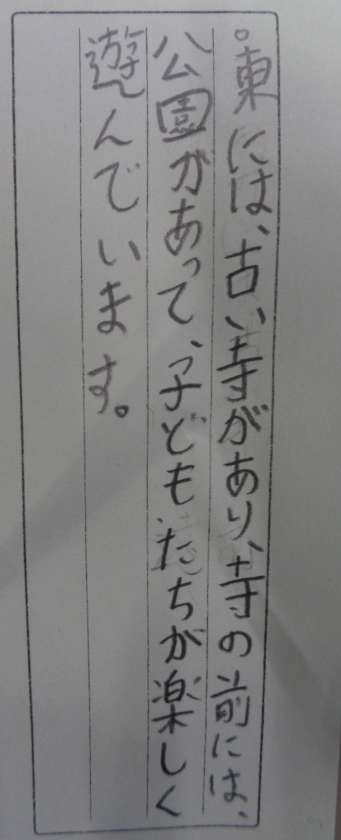 。東には、古い寺があり、寺の前には、
公園があって、子どもたちが楽しく
遊んでいます。